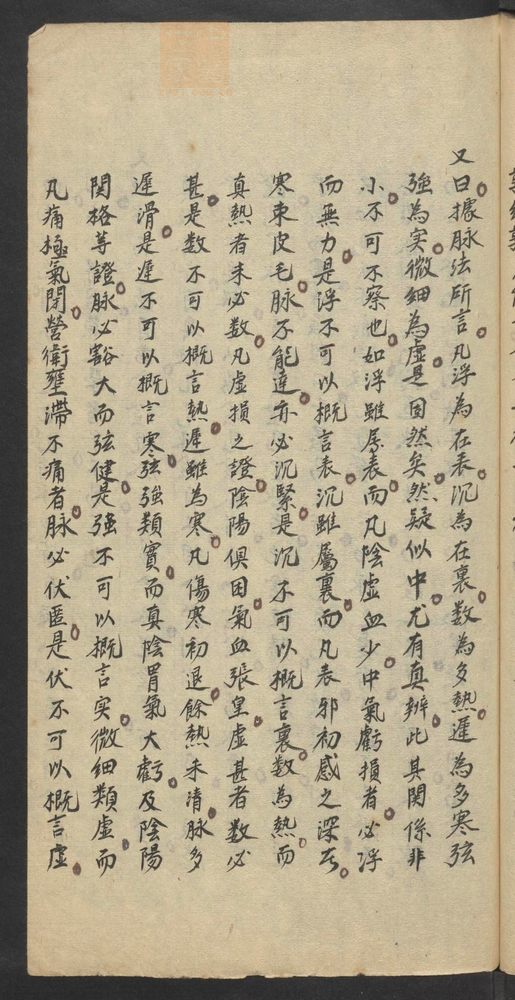 又曰據脉法所言凡浮為在表沉為在裏数為多熱遲為多寒弦
強為实微細為虛是固然矣然疑似中尤有真辨此其関係非
小不可不察也如浮雖属表而凡陰虛血少中氣虧損者必浮
而無力是浮不可以概言表沉雖屬裏而凡表邪初感之深者
寒束皮毛脉不能達亦必沉緊是沉不可以概言裏数為熱而
真熱者未必数凡虛損之證陰陽俱困氣血張皇虛甚者数必
甚是数不可以概言熱遲雖為寒凡傷寒初退餘熱未清脉多
遲滑是遲不可以概言寒弦強類實而真陰胃氣大虧及陰陽
関格等證脉必豁大而弦健是強不可以概言实微細類虛而
凡痛極氣閉營衛壅滞不痛者脉必伏匿是伏不可以概言虛